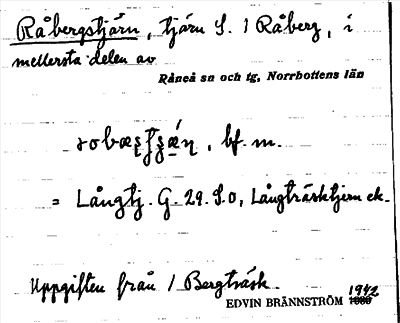 Råbergstjärn, tjärn S. 1 Råberg, i
mellersta delen av
Råneå sn och tg, Norrbottens län
bf. m.
= Långtj. G. 29. S.O, Långträsktjern ek.
Uppgiften från 1 Bergträsk
EDVIN BRÄNNSTRÖM 1942